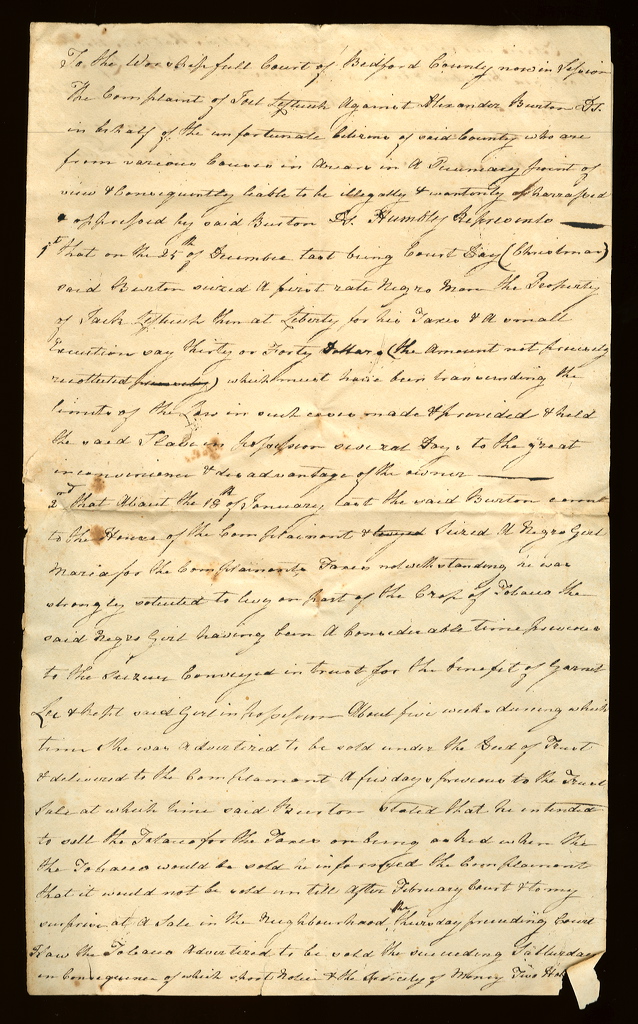 To the Worshipfull Court of Bedford County now in Session
The Complaint of Joel Leftwich Against Alexander Burton Ds.
in behalf of the unfortunate Citizens of said County who are
from various Causes in arears in A Pecuniary point of
view & Consequently liable to be illegally & wantonly harrassed
& oppressed by said Burton Ds. Humbly Represents
1st That on the 25th of December last being Court Day (Christmas)
said Burton seized A first rate Negro Man the Property
of Jack Leftwich then at Liberty for his Taxes & A small
Execution say Thirty or Forty Dollars (the Amount not precisely
recollected) which must have been transcending the
limits of the Law in such cases made & provided & held
the said Slave in possession several Days to the great
inconvenience & disadvantage of the owner
2nd That About the 18th of January last the said Burton came
to the House of the Complainant & Seized A Negro Girl
Maria for the Complainants Taxes notwithstanding he was
strongly solicited to levy on part of the Crop of Tobacco the
said Negro Girl having been A Considerable time previous
to the Seizure Conveyed in trust for the benefit of Garnet
Lee & kept said Girl in possession About five weeks during which
time she was Advertized to be sold under the Deed of Trust
& delivered to the Complainant A few days previous to the Trust
Sale at which time said Burton stated that he intended
to sell the Tobacco for the Taxes on being asked when the
the Tobacco would be sold he informed the Complainant
that it would not be sold untill after February Court & to my
surprise at A Sale in the Neighbourhood the Thursday preceding Court
I Saw the Tobacco Advertized to be sold the succeeding Satturday
in Consequence of which short Notice & the Scarcity of Money Two